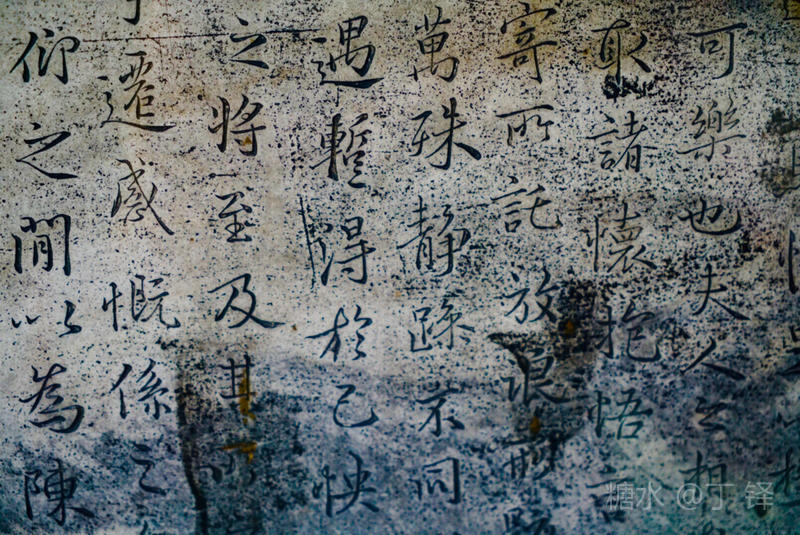 可樂也夫人之相
取諸懷抱悟言
寄所託放浪形
萬殊静躁不同
遇暫得於己快
之將至及其所
遷感慨係之
仰之閒以為陳
糖水 @丁铎